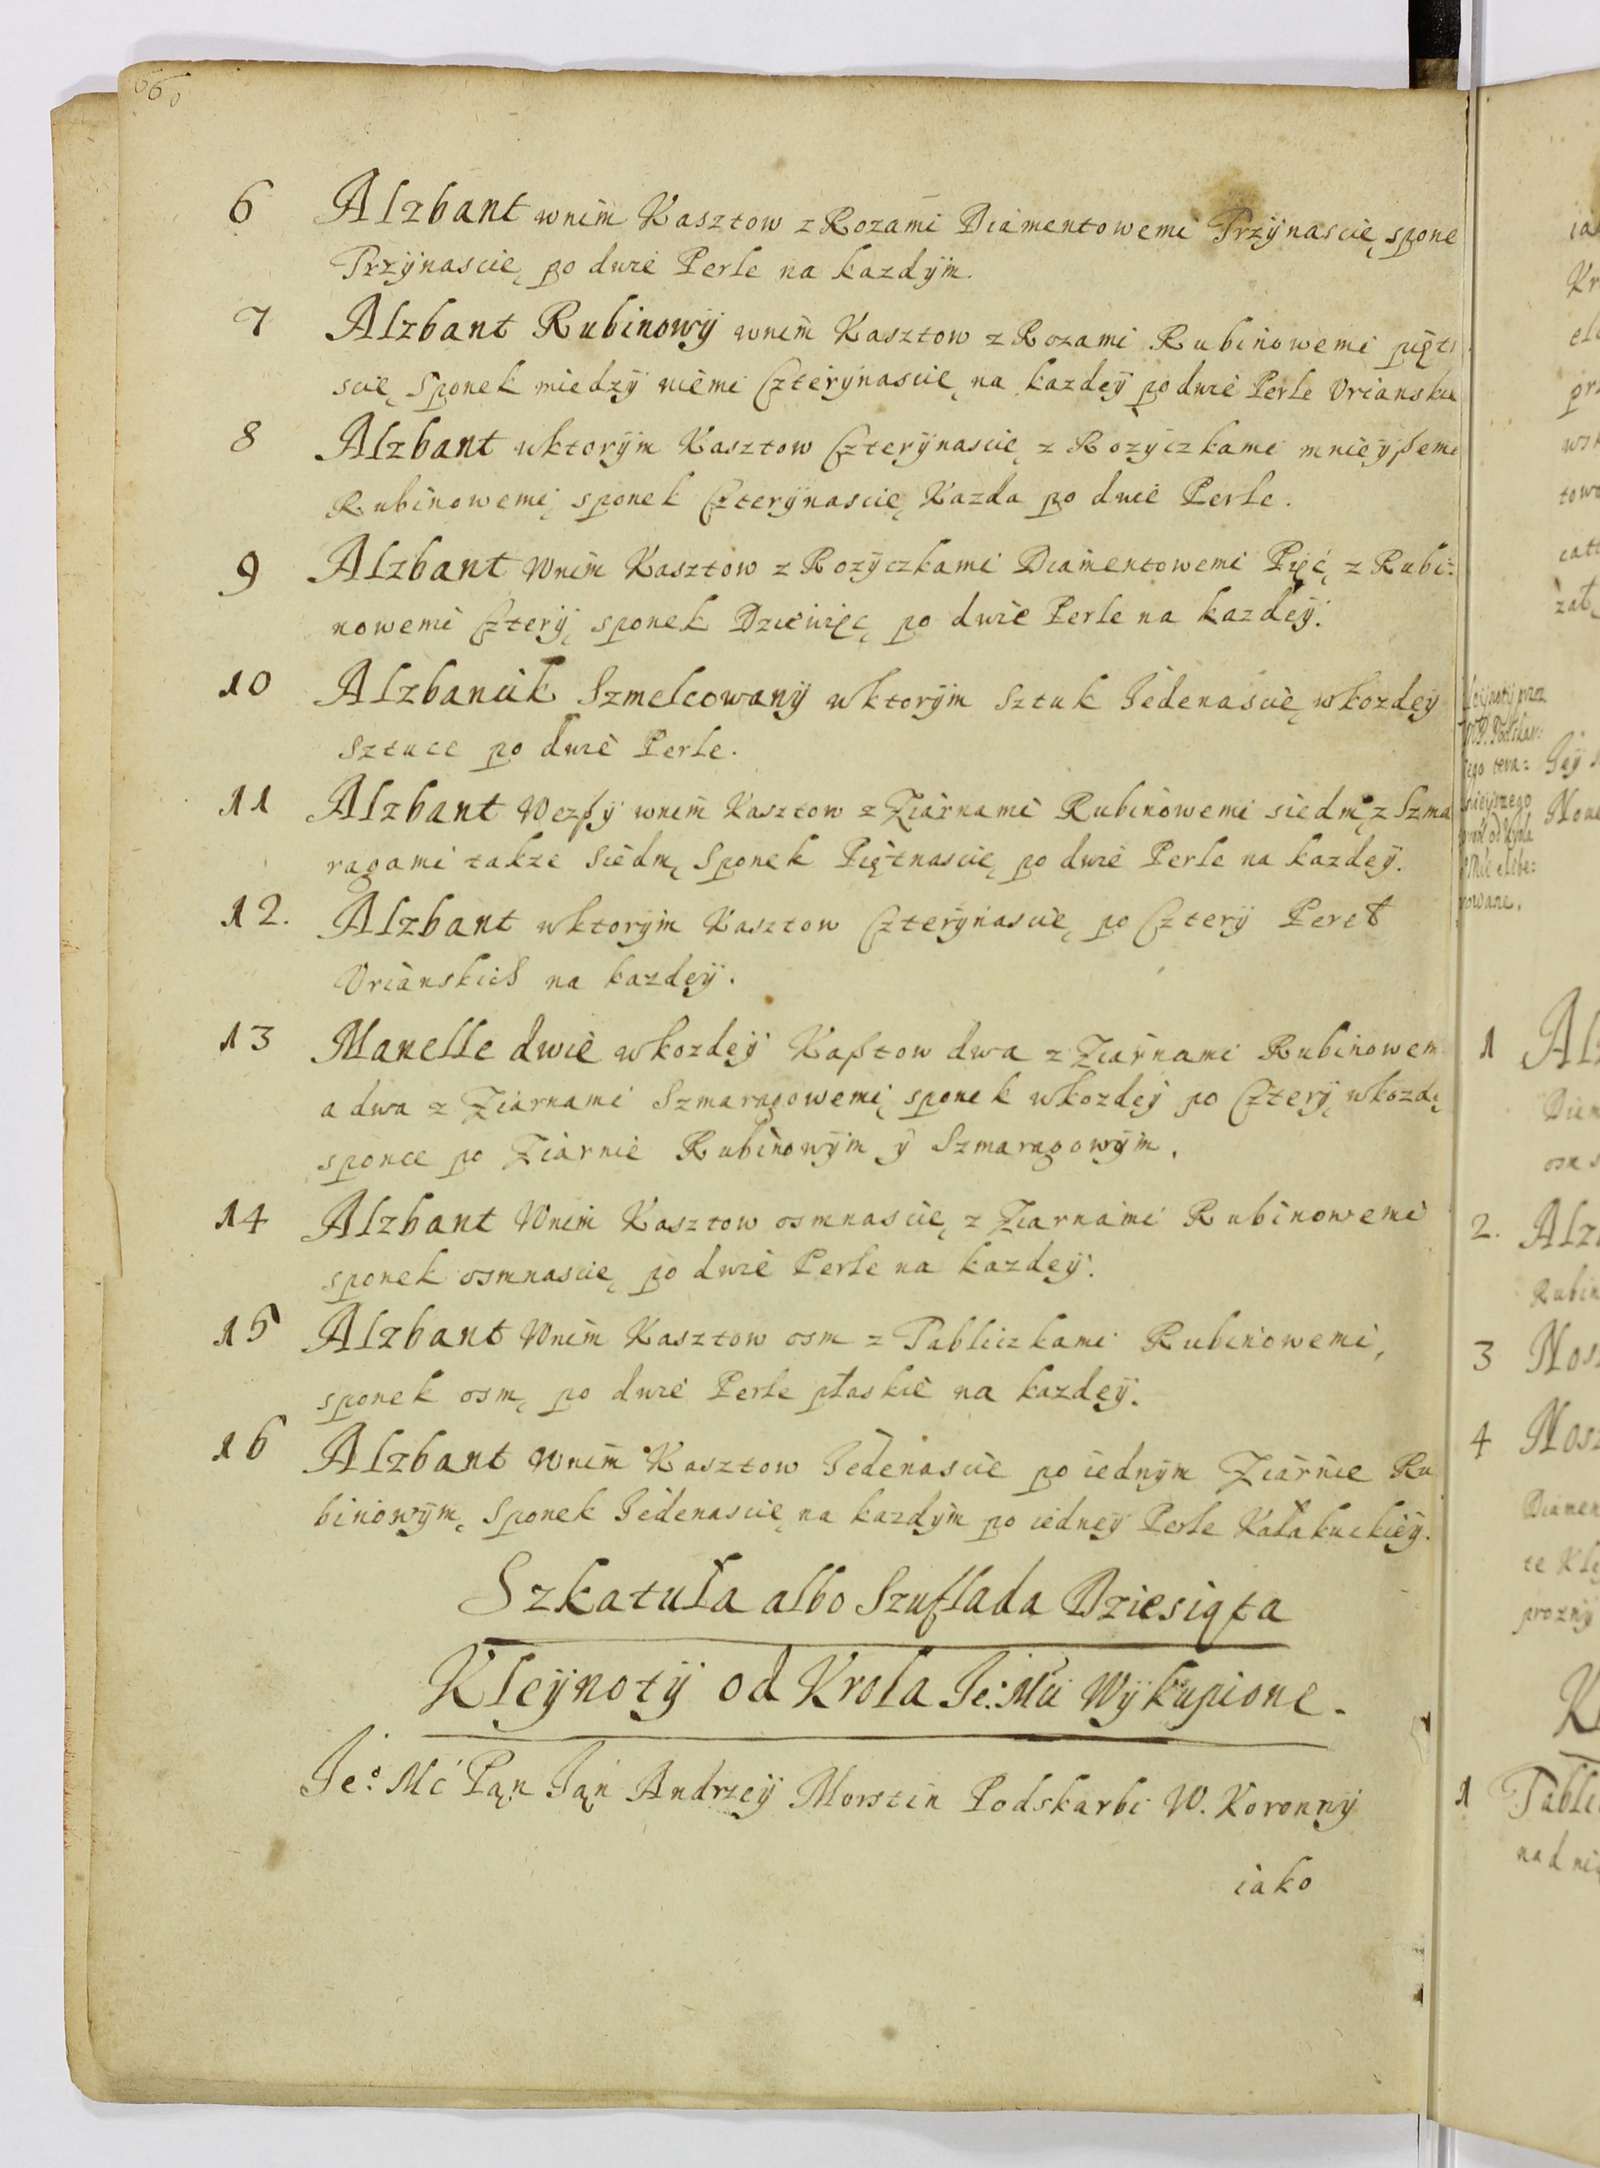 6 Alzbant wnim Kasztow z Rozami Diamentowemi Trzÿnascię, spone
Trzÿnascie, po dwie Perle na kazdÿm.
7 Alzbant Rubinowÿ wnim Kasztow z Rozami Rubinowemi piętn
scie, Sponek miedzÿ niemi Czterÿnascie, na kazdeÿ po dwie Perle Vrianskie
8 Alzbant wktorÿm Kasztow Czterÿnascie, z Rozyczkami mnieÿßemi
Rubinowemi, sponek Czterÿnascie, Kazda po dwie Perle.
9 Alzbant Wnim Kasztow z Rozÿczkami Diamentowemi Pięć, z Rubi:
nowemi Czterÿ, sponek Dziewięć, po dwie Perle na kazdeÿ.
10 Alzbancik Szmelcowanÿ wktorÿm Sztuk Jedenascie, wkozdeÿ
Sztuce po dwie Perle.
11 Alzbant Wezßÿ wnim Kasztow z Ziarnami Rubinowemi siedm, z Szma
ragami takze Siedm, Sponek Piętnascie, po dwie Perle na kazdeÿ.
12. Alzbant wktorÿm Kasztow Czterÿnascie, po Czterÿ Pereł
Vrianskich na kazdeÿ.
13 Manelle dwie wkozdeÿ Kaßtow dwa z Ziarnami Rubinowem
a dwa z Ziarnami Szmaragowemi, sponek wkozdeÿ po Czterÿ, wkozde
sponce po Ziarnie Rubinowÿm ÿ Szmaragowÿm.
14 Alzbant Wnim Kasztow osmnascie, z Ziarnami Rubinowemi
sponek osmnascie, po dwie Perle na kazdeÿ.
15 Alzbant Wnim Kasztow osm z Tabliczkami Rubinowemi,
sponek osm, po dwie Perle płaskie na kazdeÿ.
16 Alzbant Wnim Kasztow Jedenascie po iednÿm Ziarnie Ru
binowÿm, Sponek Jedenascie, na kazdÿm po iedneÿ Perle Kałakuckieÿ.
Szkatuła albo Szuflada Dziesiąta
Kleÿnotÿ od Krola Je: Mći Wÿkupione.
Je: Mć Pąn Ján Andrzeÿ Morstin Podskarbi W. Koronnÿ
iako
1
2.
3
4
1